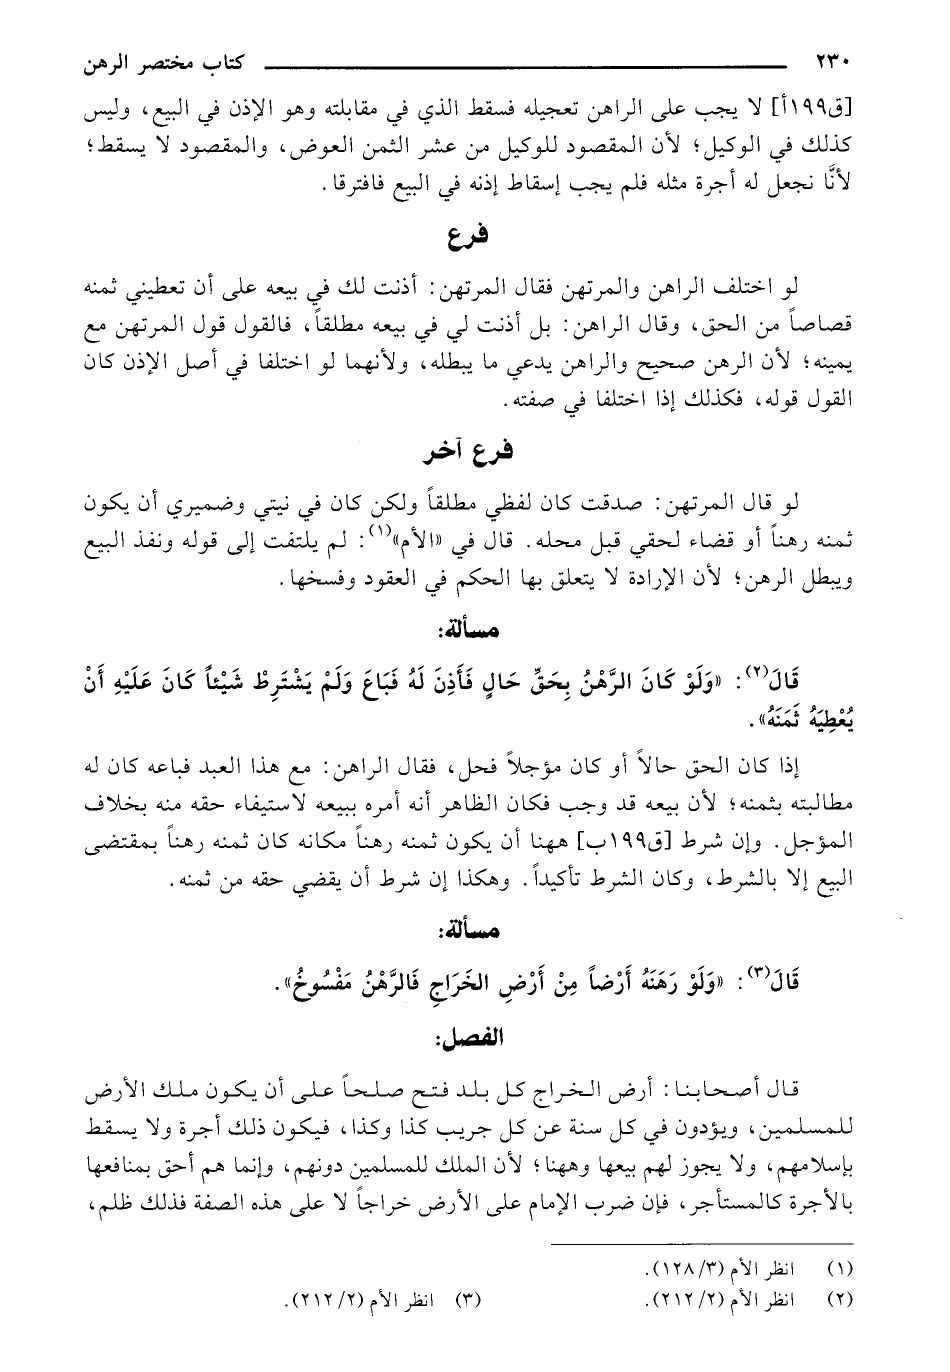 ٢٣٠ كتاب مختصر الرهن
[ق١٩٩أ] لا يجب على الراهن تعجيله فسقط الذي في مقابلته وهو الإذن في البيع، وليس
كذلك في الوكيل؛ لأن المقصود للوكيل من عشر الثمن العوض، والمقصود لا يسقط؛
لأنَّا نجعل له أجرة مثله فلم يجب إسقاط إذنه في البيع فافترقا.
فرع
لو اختلف الراهن والمرتهن فقال المرتهن: أذنت لك في بيعه على أن تعطيني ثمنه
قصاصاً من الحق، وقال الراهن: بل أذنت لي في بيعه مطلقاً، فالقول قول المرتهن مع
يمينه؛ لأن الرهن صحيح والراهن يدعي ما يبطله، ولأنهما لو اختلفا في أصل الإذن كان
القول قوله، فكذلك إذا اختلفا في صفته.
فرع آخر
لو قال المرتهن: صدقت كان لفظي مطلقاً ولكن كان في نيتي وضميري أن يكون
ثمنه رهناً أو قضاء لحقي قبل محله. قال في «الأم»(١): لم يلتفت إلى قوله ونفذ البيع
ويبطل الرهن؛ لأن الإرادة لا يتعلق بها الحكم في العقود وفسخها.
مسألة:
قَالَ(٢): «وَلَوْ كَانَ الرَّهْنُ بِحَقٍّ حَالٍ فَأَذِنَ لَهُ فَبَاعَ وَلَمْ يَشْتَرِطْ شَيْئاً كَانَ عَلَيْهِ أَنْ
يُعْطِيَهُ ثَمَنَهُ».
إذا كان الحق حالاً أو كان مؤجلاً فحل، فقال الراهن: مع هذا العبد فباعه كان له
مطالبته بثمنه؛ لأن بيعه قد وجب فكان الظاهر أنه أمره ببيعه لاستيفاء حقه منه بخلاف
المؤجل. وإن شرط [ق١٩٩ب] ههنا أن يكون ثمنه رهناً مكانه كان ثمنه رهناً بمقتضى
البيع إلا بالشرط، وكان الشرط تأكيداً. وهكذا إن شرط أن يقضي حقه من ثمنه.
مسألة:
قَالَ(٣): «وَلَوْ رَهَنَهُ أَرْضاً مِنْ أَرْضِ الخَرَاجِ فَالرَّهْنُ مَفْسُوخُ».
الفصل:
قال أصحابنا: أرض الخراج كل بلد فتح صلحاً على أن يكون ملك الأرض
للمسلمين، ويؤدون في كل سنة عن كل جريب كذا وكذا، فيكون ذلك أجرة ولا يسقط
بإسلامهم، ولا يجوز لهم بيعها وههنا؛ لأن الملك للمسلمين دونهم، وإنما هم أحق بمنافعها
بالأجرة كالمستأجر، فإن ضرب الإمام على الأرض خراجاً لا على هذه الصفة فذلك ظلم،
(١) انظر الأم (٣/ ١٢٨).
(٢) انظر الأم (٢/ ٢١٢). (٣) انظر الأم (٢/ ٢١٢).